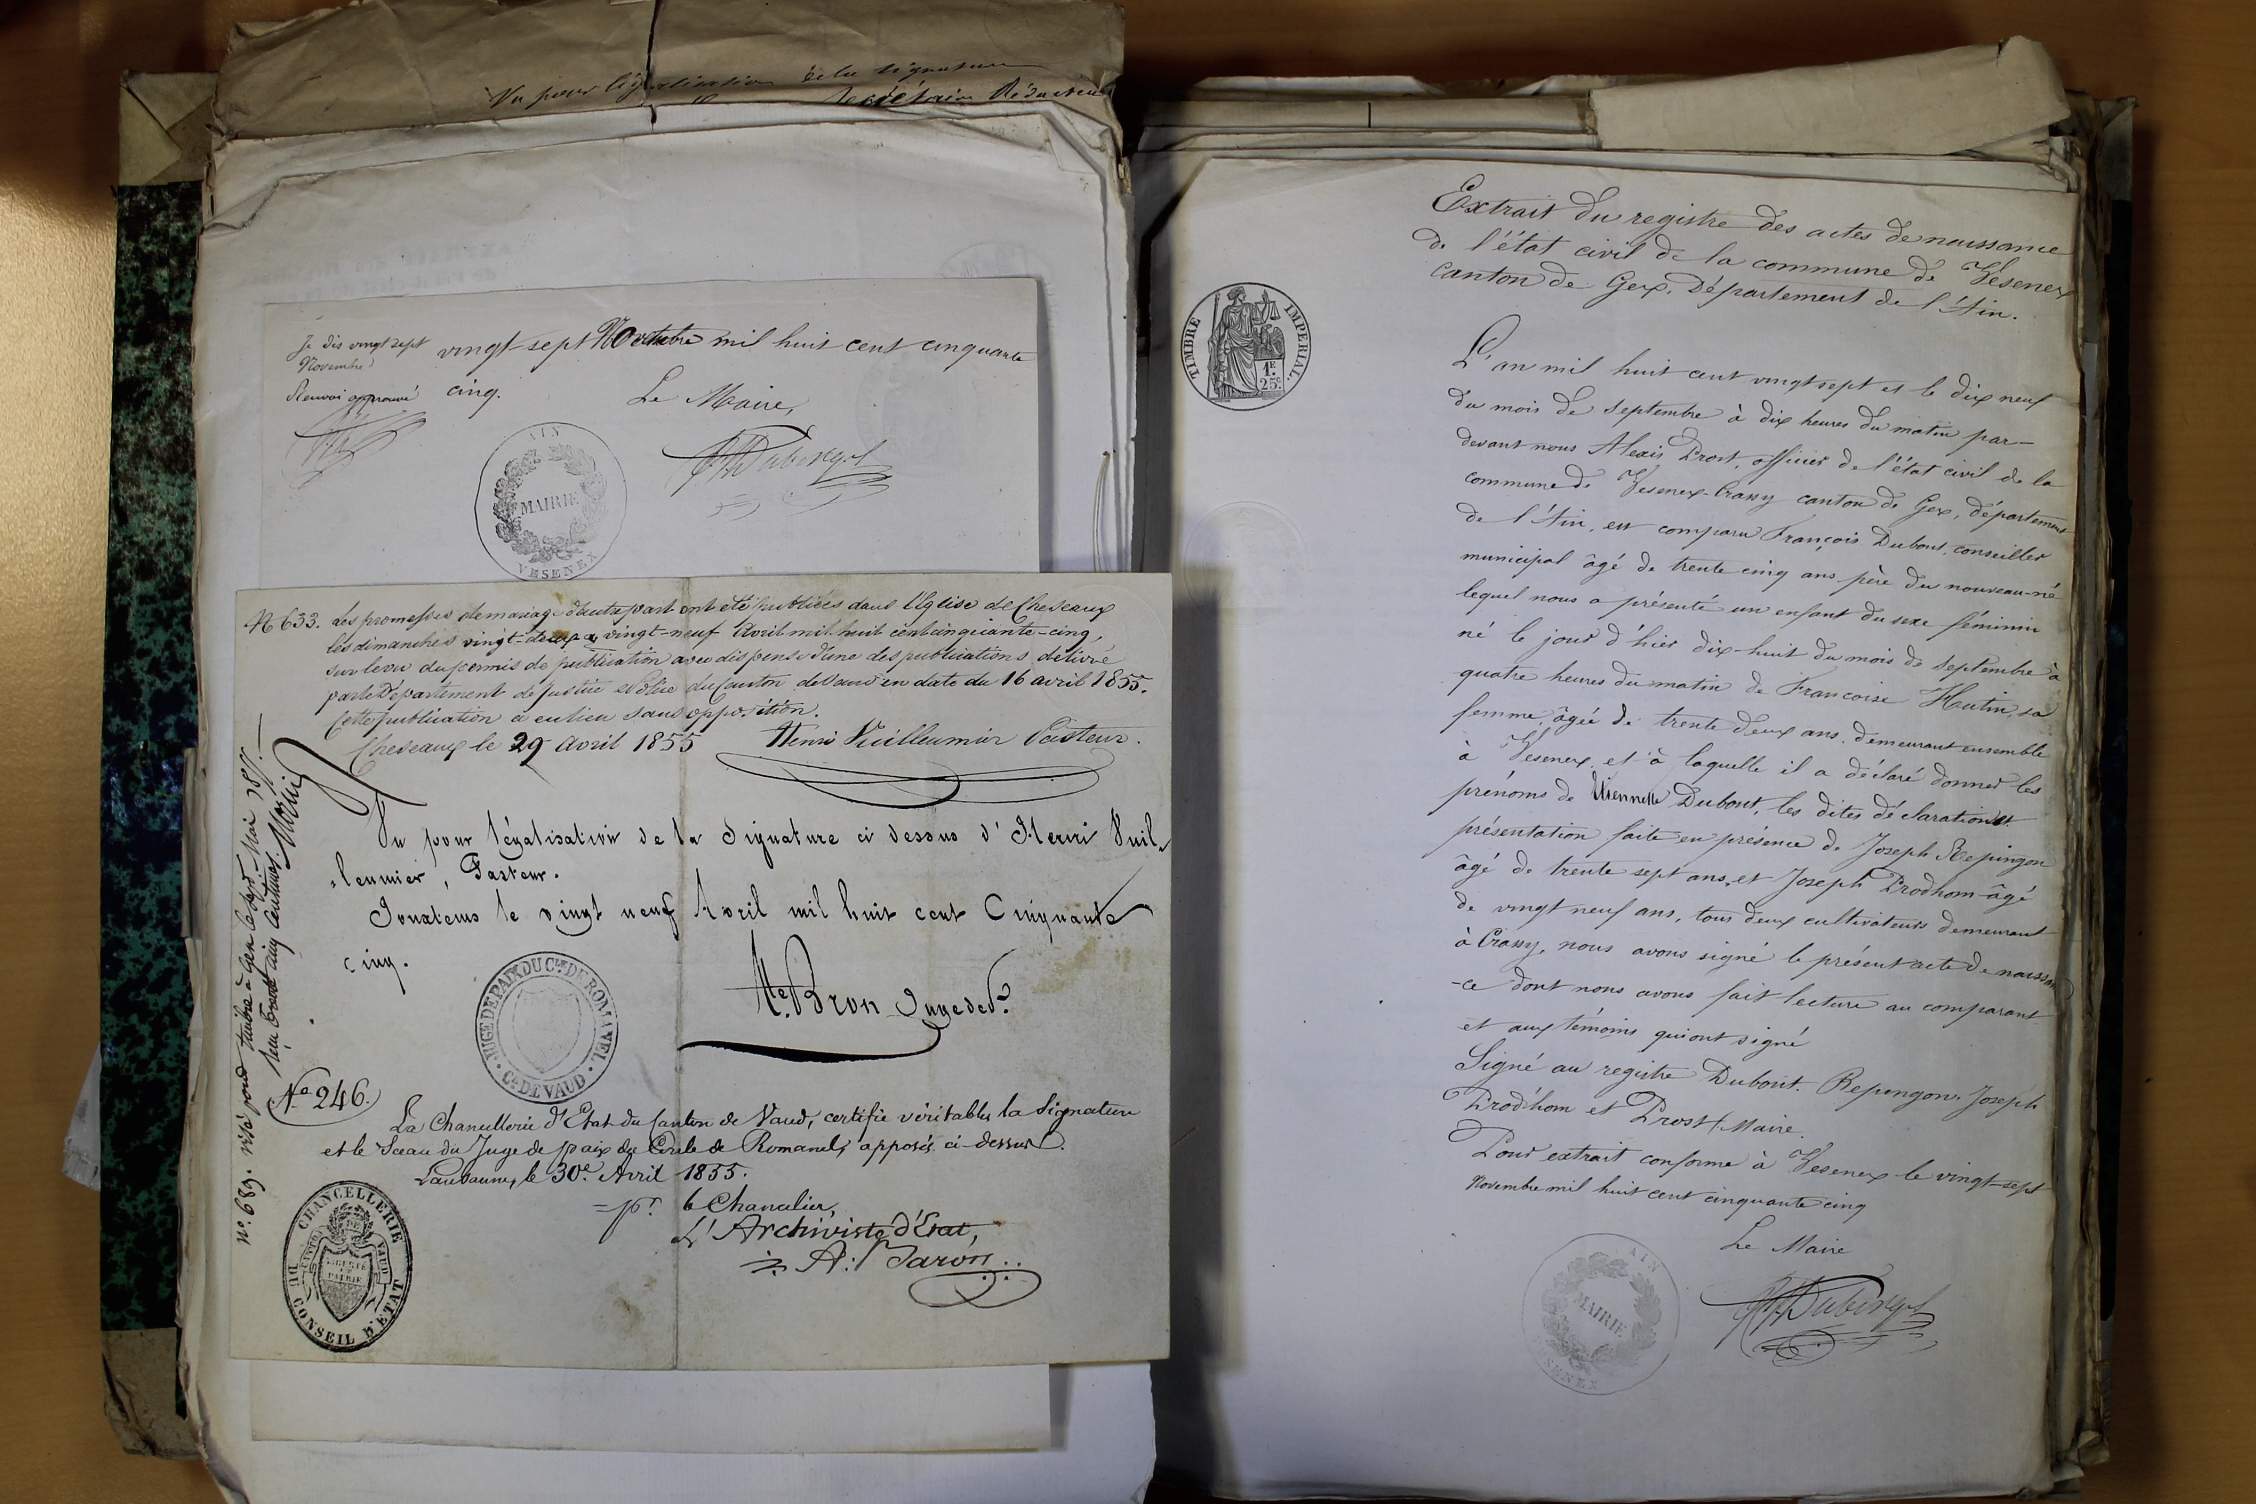 Vu pour légalisation de la signature
Secrétaire Rédacteur
Je dis vingt sept
Novembre
Renvoi approuvé
vingt-sept Novembre mil huit cent cinquante
cinq.
Le Maire,
AIN
MAIRIE
VESENEX
N° 633. Les promesses de mariage d'autre part ont été publiées dans l'Eglise de Cheseaux
les dimanches vingt-deux & vingt-neuf Avril mil huit cent cinquante-cinq,
sur le vu du permis de publication avec dispense d'une des publications délivré
par le Département de Justice et Police du Canton de Vaud en date du 16 avril 1855.
Cette publication a eu lieu sans opposition.
Cheseaux le 29 Avril 1855 Henri Vuilleumier Pasteur.
Vu pour légalisation de la Signature ci dessus d'Henri Vuil-
-leumier, Pasteur.
Jouxtems le vingt neuf Avril mil huit cent Cinquante
cinq.
JUGE DE PAIX DU CLE DE ROMANEL
CN DE VAUD
Mc Bron Juge de P.
N° 246.
La Chancellerie d'Etat du Canton de Vaud, certifie véritables la Signature
et le Sceau du Juge de paix du Cercle de Romanel, apposés ci-dessus.
Lausanne, le 30e Avril 1855.
pr. le Chancelier,
L'Archiviste d'Etat,
A: Baron
CHANCELLERIE
DU CONSEIL D'ETAT
CANTON DE VAUD
LIBERTÉ ET PATRIE
n° 689. visé pour timbre à Gex le sept Mai 1855.
Reçu trente cinq centimes.
Extrait du registre des actes de naissance
de l'état civil de la commune de Vésenex
canton de Gex. Département de l'Ain.
TIMBRE IMPERIAL.
1F.
25c
L'an mil huit cent vingt sept et le dix neuf
du mois de septembre à dix heures du matin par-
devant nous Alexis Prost, officier de l'état civil de la
commune de Vesenex-Crassy canton de Gex, département
de l'Ain, est comparu François Dubout, conseiller
municipal âgé de trente cinq ans père du nouveau-né
lequel nous a présenté un enfant du sexe féminin
né le jour d'hier dix-huit du mois de septembre à
quatre heures du matin de Francoise Hutin, sa
femme, âgée de trente deux ans, demeurant ensemble
à Vesenex, et à laquelle il a déclaré donner les
prénoms de Etiennette Dubout, les dites déclaration et
présentation faite en présence de Joseph Repingon
âgé de trente sept ans, et Joseph Prodhom âgé
de vingt neuf ans, tous deux cultivateurs demeurant
à Crassy, nous avons signé le présent acte de naissan
-ce dont nous avons fait lecture au comparant
et aux témoins qui ont signé
Signé au registre Dubout. Repingon. Joseph
Prodhom et Prost, Maire.
Pour extrait conforme à Vesenex le vingt-sept
Novembre mil huit cent cinquante cinq
Le Maire
AIN
MAIRIE
VESENEX